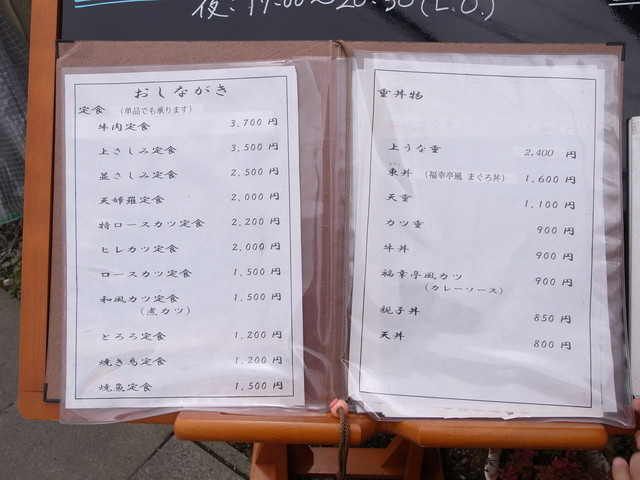 夜:17:00~20:30(L.O.)
おしながき
定食 (単品でも承ります)
牛肉定食 3,700円
上さしみ定食 3,500円
並さしみ定食 2,500円
天婦羅定食 2,000円
特ロースカツ定食 2,200円
ヒレカツ定食 2,000円
ロースカツ定食 1,500円
和風カツ定食 1,500円
(煮カツ)
とろろ定食 1,200円
焼き鳥定食 1,200円
焼魚定食 1,500円
重丼物
上うな重 2,400円
東丼 (福幸亭風 まぐろ丼) 1,600円
天重 1,100円
カツ重 900円
牛丼 900円
福幸亭風カツ 900円
(カレーソース)
親子丼 850円
天丼 800円